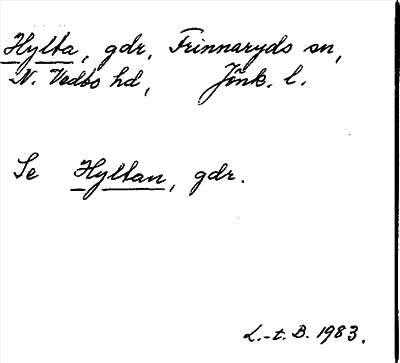 Hylta, gdr, Frinnaryds sn,
N. Vedbo hd, Jönk. l.
Se Hyltan, gdr.
L.-t. B. 1983.